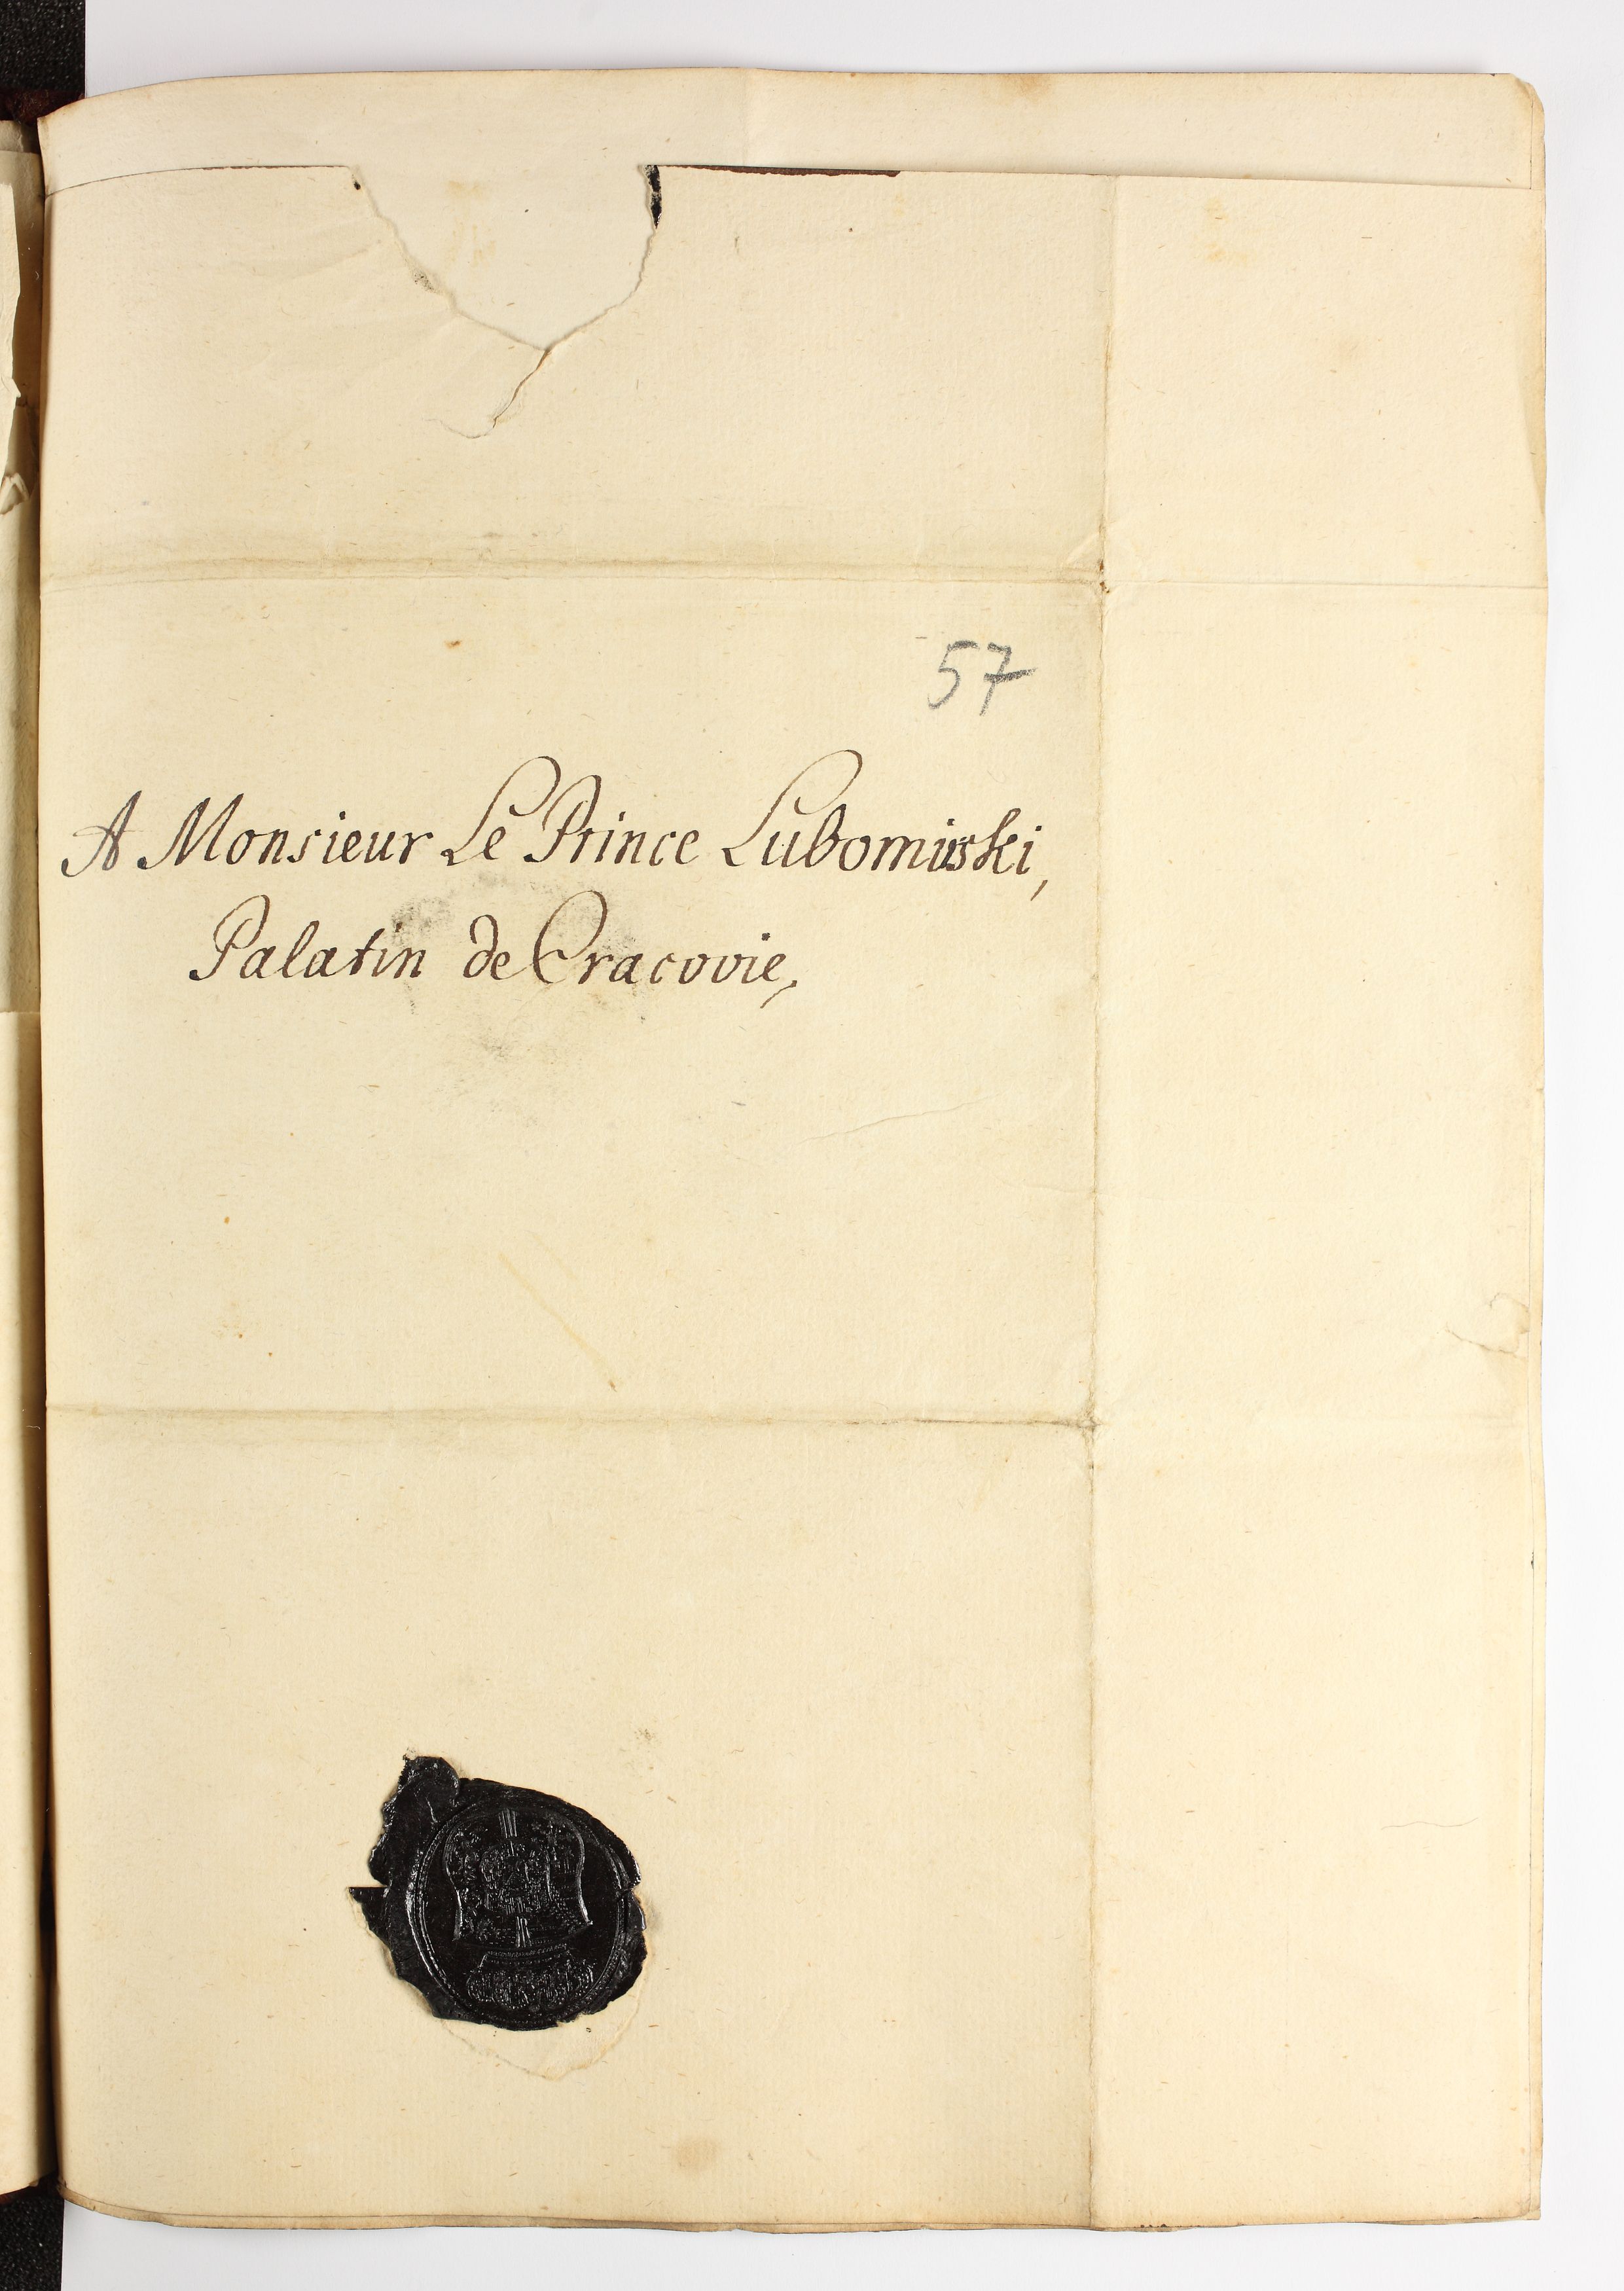 57
A Monsieur Le Prince Lubomirski,
Palatin de Cracovie,